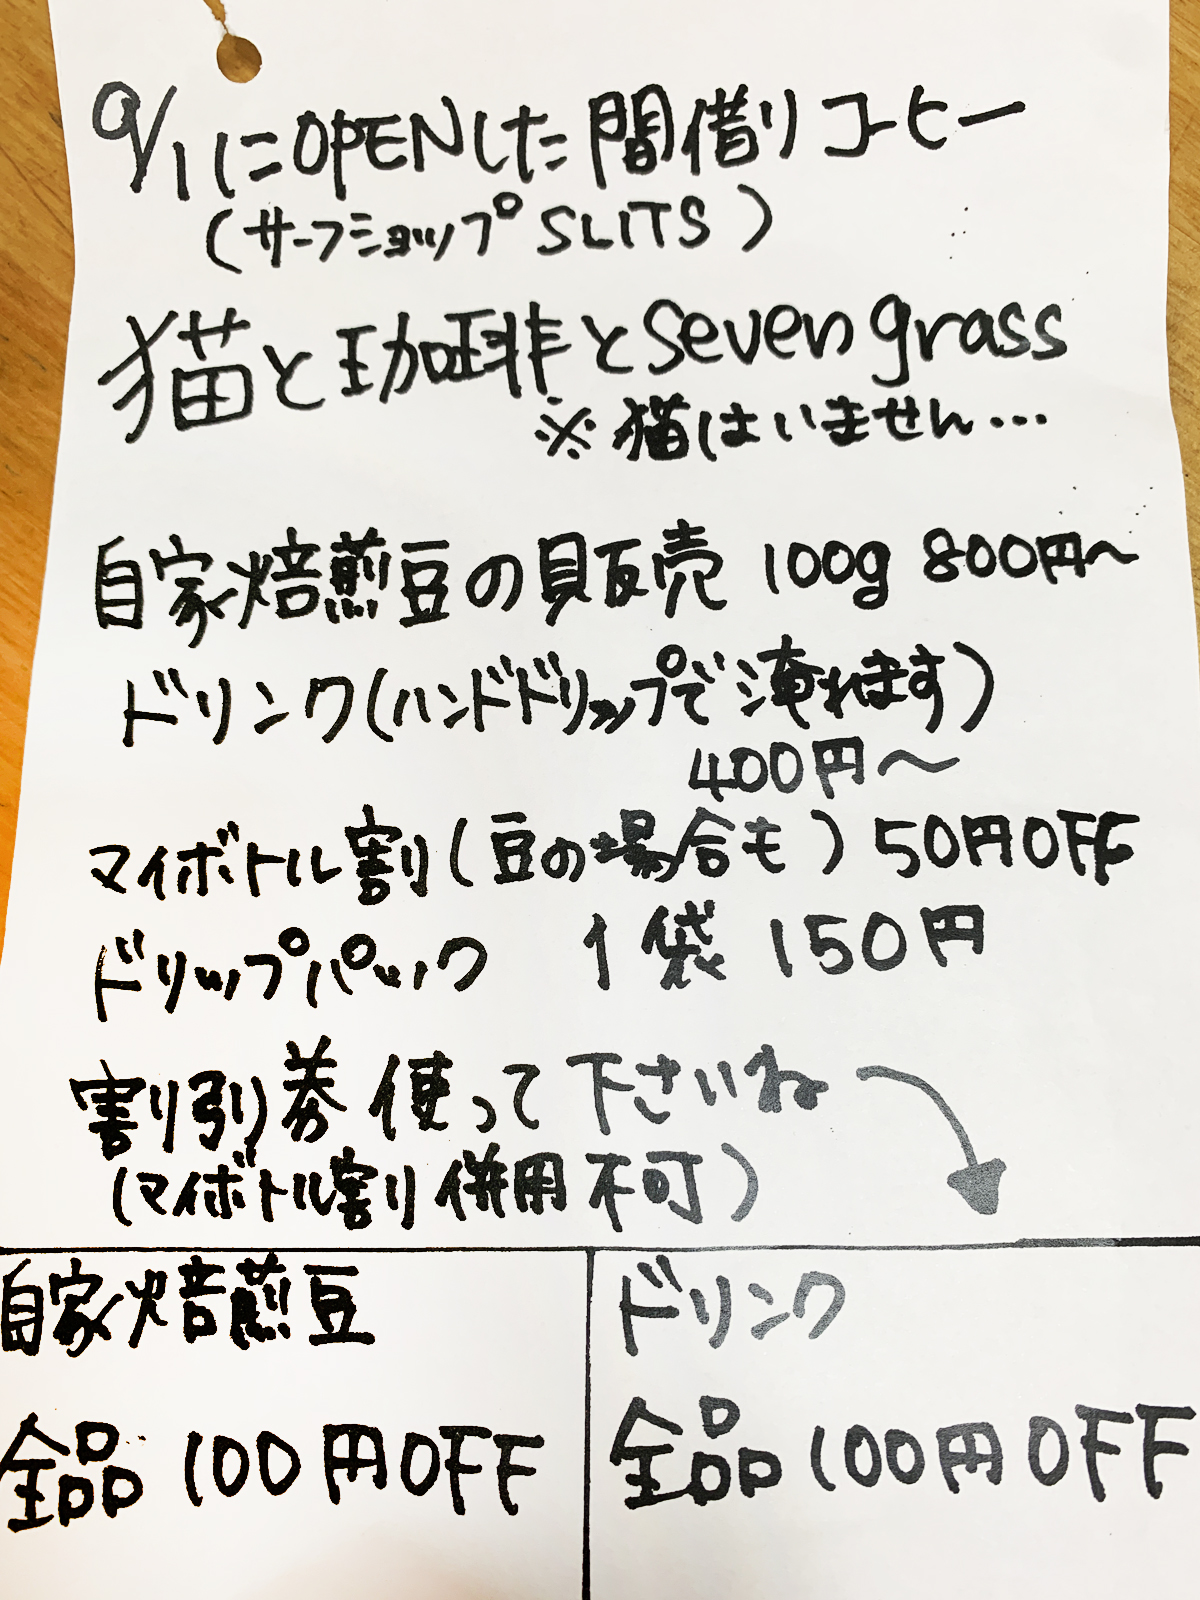 9/1にOPENした間借りコーヒー
(サーフショップSLITS)
猫と珈琲とSeven grass
※猫はいません…
自家焙煎豆の販売 100g 800円〜
ドリンク(ハンドドリップで淹れます)
400円〜
マイボトル割(豆の場合も) 50円OFF
ドリップパック 1袋 150円
割引券使って下さいね
(マイボトル割り併用不可)
自家焙煎豆
全品100円OFF
ドリンク
全品100円OFF